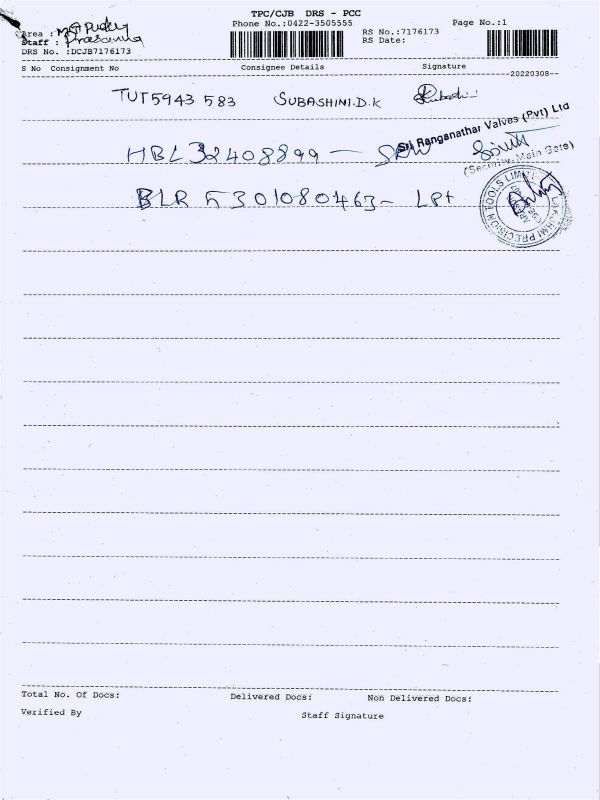 TPC/CJB DRS - PCC
Phone No.:0422-3505555
Page No.:1
RS No.:7176173
RS Date:
Area :
Staff : Prasanna
DRS No. :DCJB7176173
S No Consignment No Consignee Details Signature
--20220308--
TUT5943 583 SUBASHINI.D.K
Sri Ranganathar Valves (Pvt) Ltd
HBL32408899 -
(Security-Main Gate)
BLR 5301080463-
LAKSHMI PRECISION TOOLS LIMITED
Total No. Of Docs: Delivered Docs: Non Delivered Docs:
Verified By Staff Signature